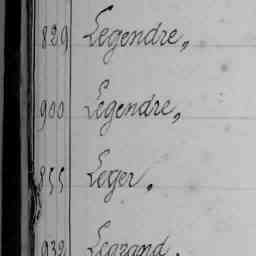 829 Legendre,
900 Legendre,
855 Leger.
932 Legrand.